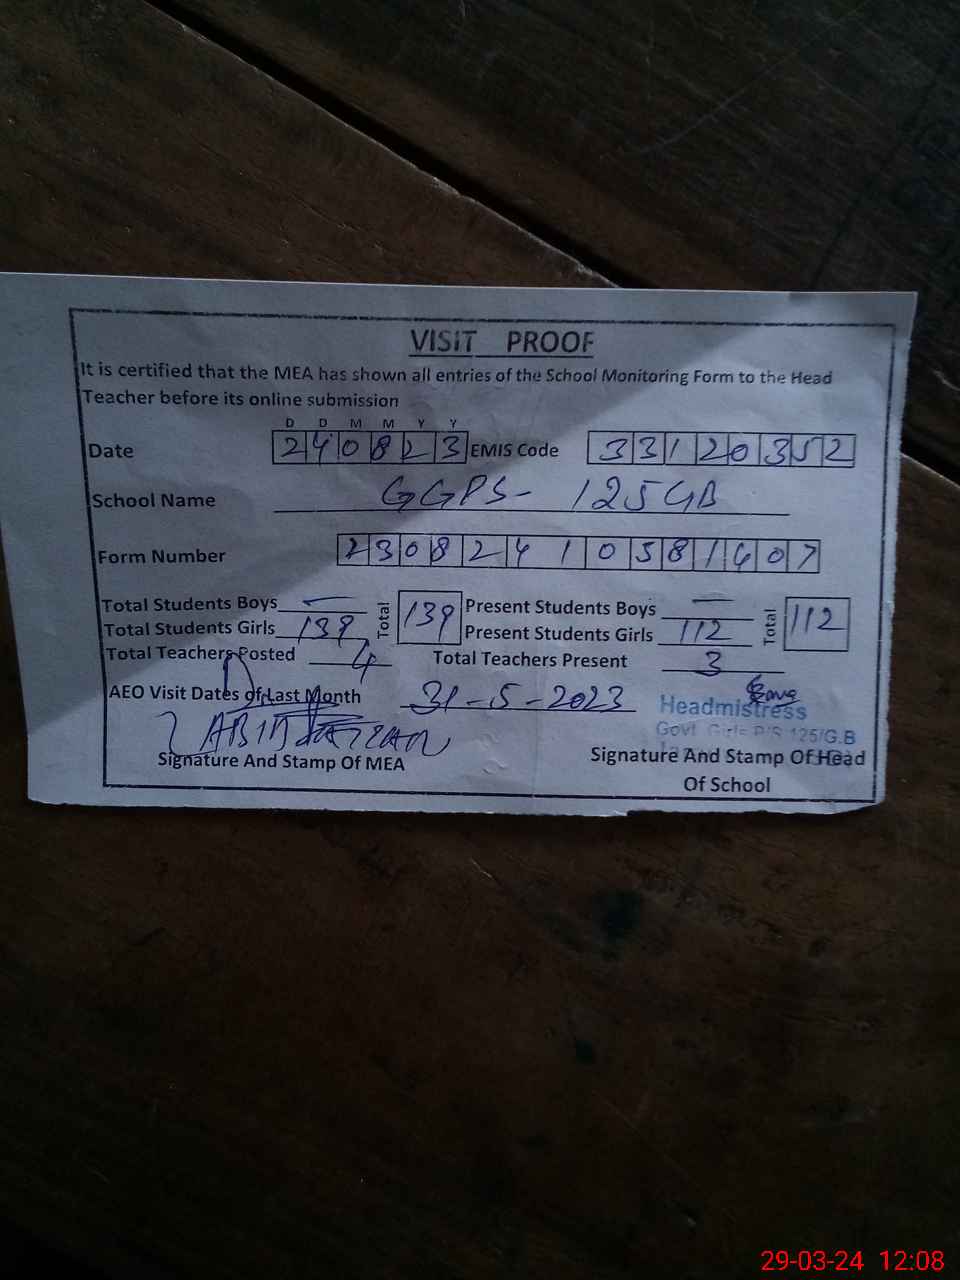 VISIT PROOF
It is certified that the MEA has shown all entries of the School Monitoring Form to the Head
Teacher before its online submission
D D M M Y Y
Date 240823 EMIS Code 33120352
School Name GGPS- 125 GB
Form Number 23082410581407
Total Students Boys — Total 139 Present Students Boys — Total 112
Total Students Girls 139 Present Students Girls 112
Total Teachers Posted 4 Total Teachers Present 3
AEO Visit Dates of Last Month 31-5-2023
Headmistress
Govt. Girls P/S 125/G.B
Signature And Stamp Of MEA
Signature And Stamp Of Head
Of School
29-03-24 12:08